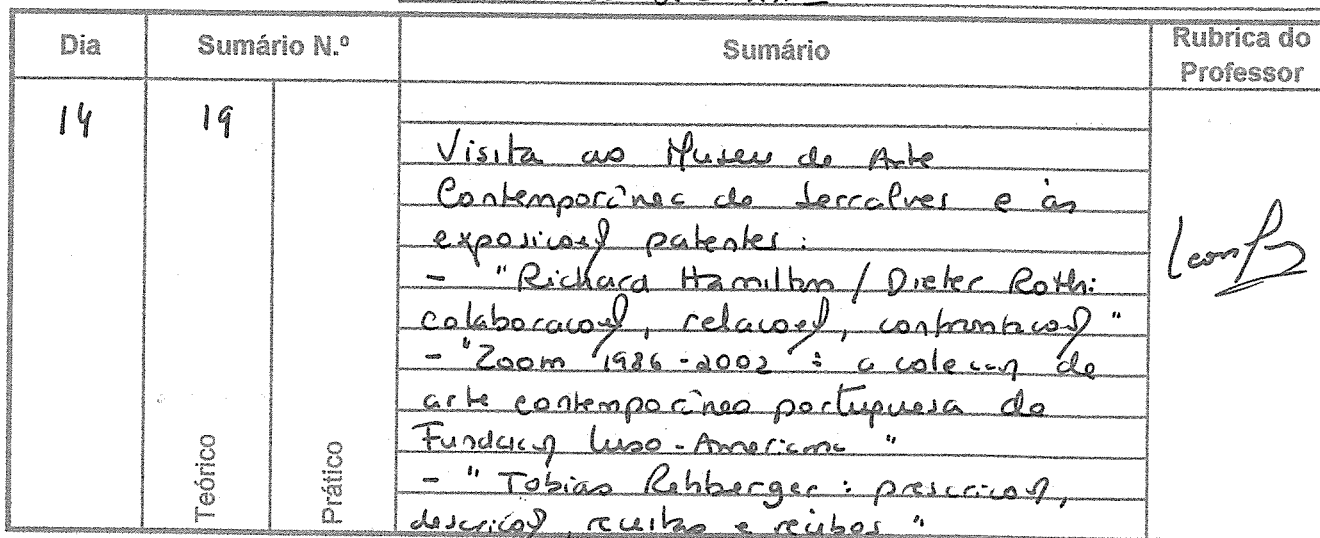 Dia Sumário N.º Sumário Rubrica do Professor
14 19
Visita ao Museu de Arte
Contemporânea de Serralves e às
exposições patentes:
- "Richard Hamilton / Dieter Roth:
colaborações, relações, confrontações"
- "Zoom 1986-2002 : a coleção de
arte contemporânea portuguesa da
Fundação Luso-Americana"
- "Tobias Rehberger : prescrições,
descrições, receitas e recibos"
Teórico Prático